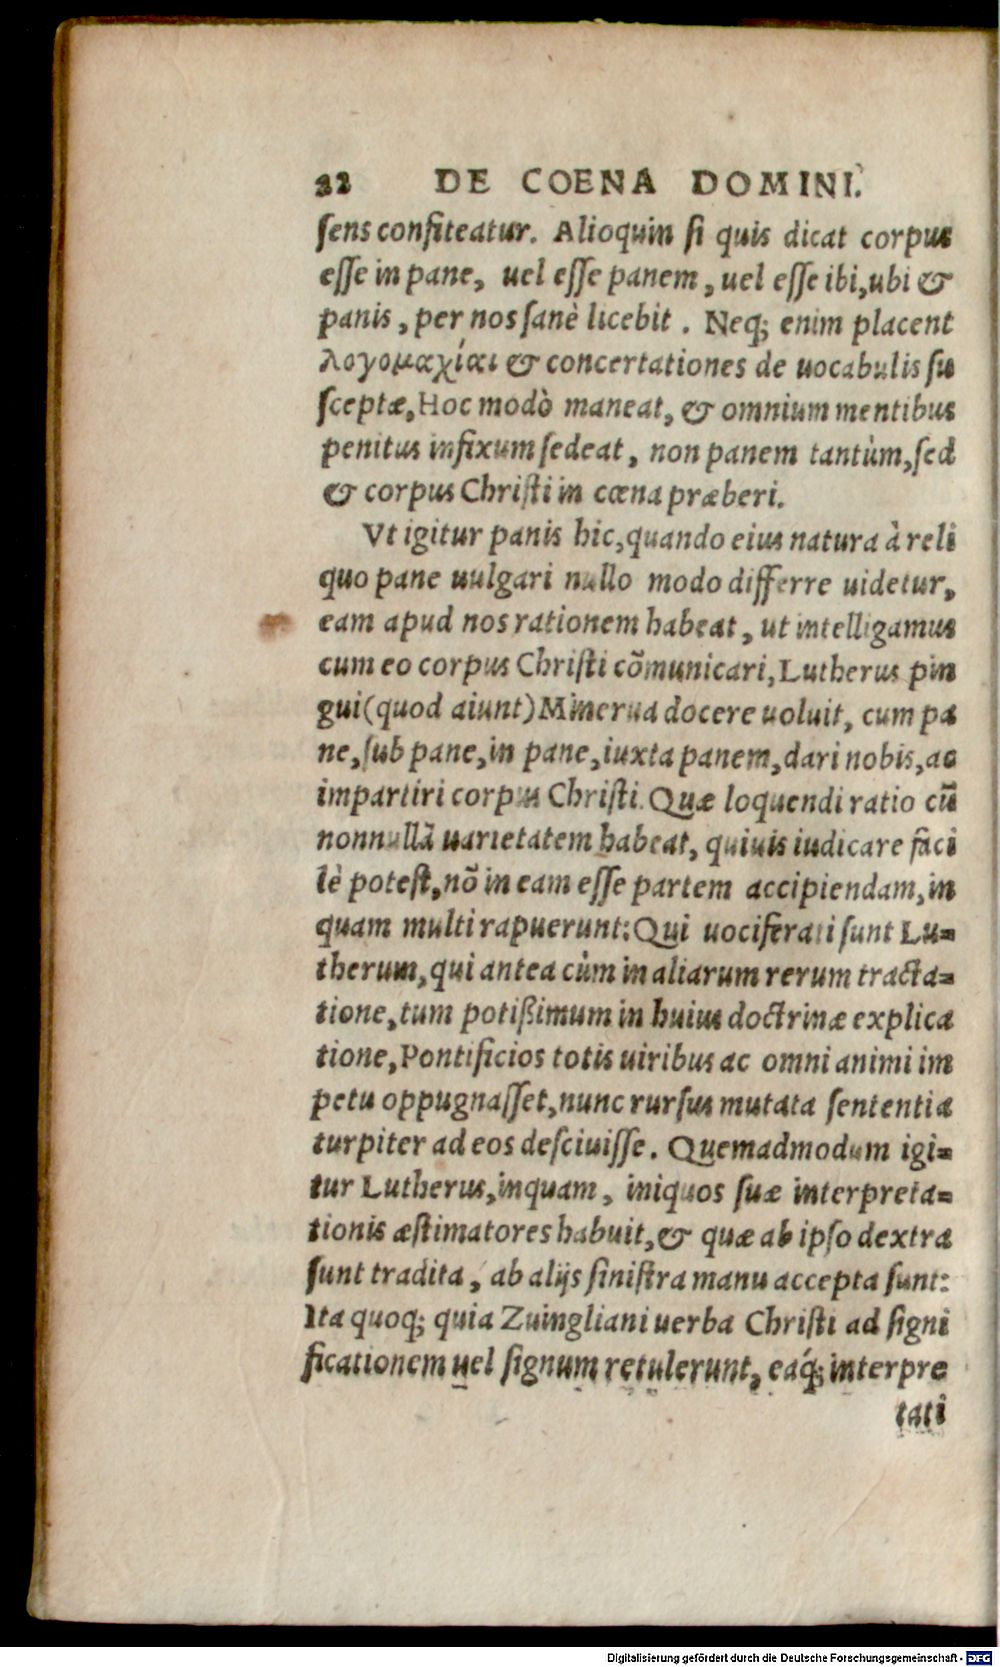 22 DE COENA DOMINI.
sens confiteatur. Alioquin si quis dicat corpus
esse in pane, uel esse panem, uel esse ibi, ubi &
panis, per nos sanè licebit. Neq; enim placent
λογομαχίαι & concertationes de uocabulis su
sceptæ, Hoc modò maneat, & omnium mentibus
penitus infixum sedeat, non panem tantùm, sed
& corpus Christi in cœna præberi.
Vt igitur panis hic, quando eius natura à reli
quo pane uulgari nullo modo differre uidetur,
eam apud nos rationem habeat, ut intelligamus
cum eo corpus Christi cõmunicari, Lutherus pin
gui (quod aiunt) Minerua docere uoluit, cum pa
ne, sub pane, in pane, iuxta panem, dari nobis, ac
impartiri corpus Christi. Quæ loquendi ratio cũ
nonnullã uarietatem habeat, quiuis iudicare faci
lè potest, nõ in eam esse partem accipiendam, in
quam multi rapuerunt: Qui uociferati sunt Lu=
therum, qui antea cùm in aliarum rerum tracta=
tione, tum potißimum in huius doctrinæ explica
tione, Pontificios totis uiribus ac omni animi im
petu oppugnasset, nunc rursus mutata sententia
turpiter ad eos desciuisse. Quemadmodum igi=
tur Lutherus, inquam, iniquos suæ interpreta=
tionis æstimatores habuit, & quæ ab ipso dextra
sunt tradita, ab alijs sinistra manu accepta sunt:
Ita quoq; quia Zuingliani uerba Christi ad signi
ficationem uel signum retulerunt, eáq; interpre
tati
Digitalisierung gefördert durch die Deutsche Forschungsgemeinschaft - DFG